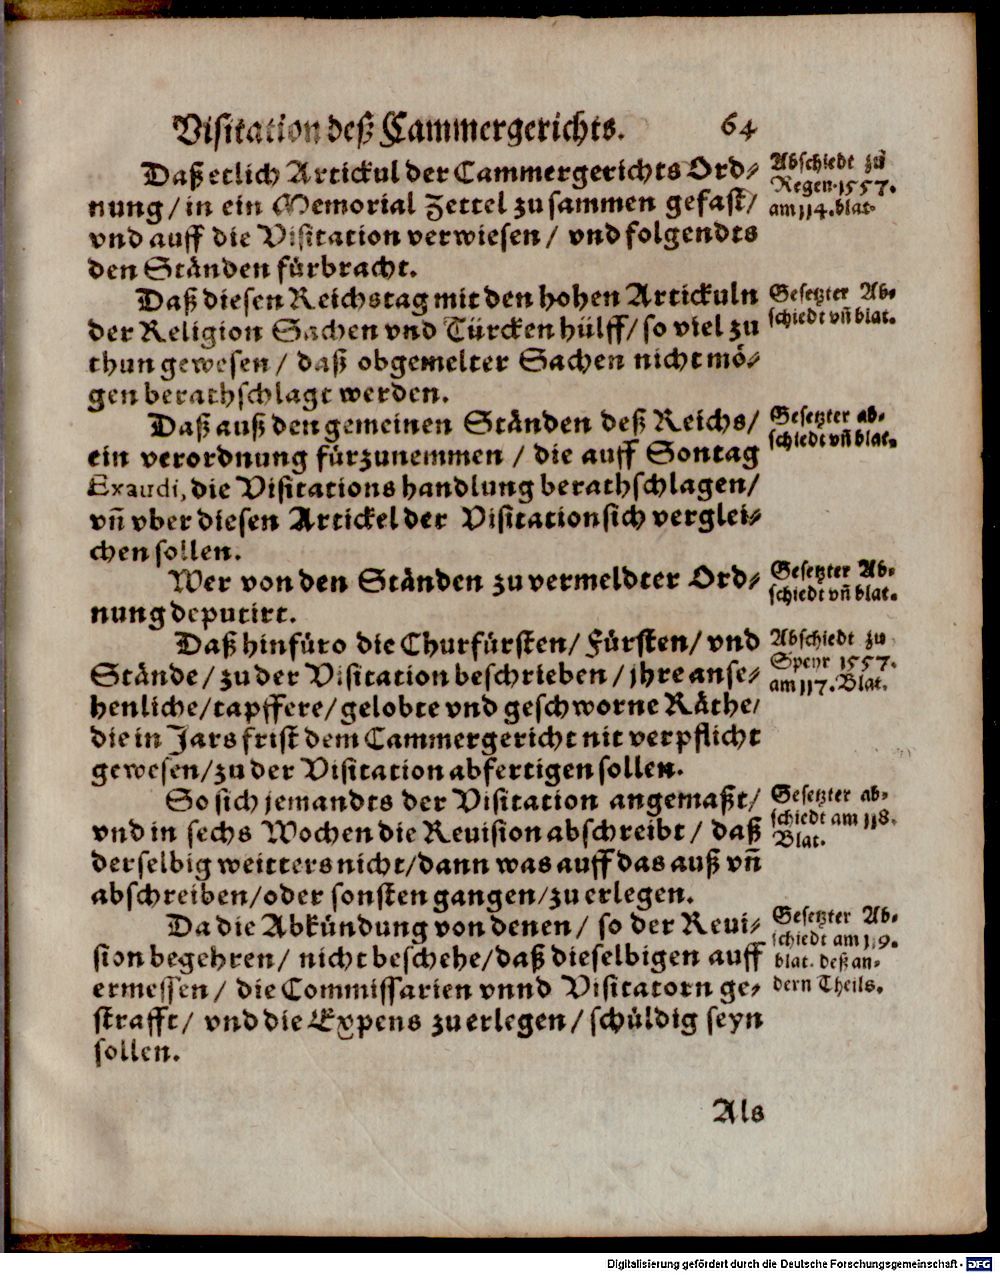 Visitation deß Cammergerichts. 64
Daß etlich Artickul der Cammergerichts Ord⸗
nung / in ein Memorial Zettel zusammen gefast /
vnd auff die Visitation verwiesen / vnd folgendts
den Ständen fürbracht.
Abschiedt zu
Regen. 1557.
am 114. blat.
Daß diesen Reichstag mit den hohen Artickuln
der Religion Sachen vnd Türcken hülff / so viel zu
thun gewesen / daß obgemelter Sachen nicht mö⸗
gen berathschlagt werden.
Gesetzter Ab⸗
schiedt vñ blat.
Daß auß den gemeinen Ständen deß Reichs /
ein verordnung fürzunemmen / die auff Sontag
Exaudi, die Visitations handlung berathschlagen /
vñ vber diesen Artickel der Visitation sich verglei⸗
chen sollen.
Gesetzter ab⸗
schiedt vñ blat.
Wer von den Ständen zu vermeldter Ord⸗
nung deputirt.
Gesetzter Ab⸗
schiedt vñ blat.
Daß hinfüro die Churfürsten / Fürsten / vnd
Stände / zu der Visitation beschrieben / jhre anse⸗
henliche / tapffere / gelobte vnd geschworne Räthe /
die in Jars frist dem Cammergericht nit verpflicht
gewesen / zu der Visitation abfertigen sollen.
Abschiedt zu
Speyr 1557.
am 117. Blat.
So sich jemandts der Visitation angemaßt /
vnd in sechs Wochen die Reuision abschreibt / daß
derselbig weitters nicht / dann was auff das auß vñ
abschreiben / oder sonsten gangen / zu erlegen.
Gesetzter ab⸗
schiedt am 118.
Blat.
Da die Abkündung von denen / so der Reui⸗
sion begehren / nicht beschehe / daß dieselbigen auff
ermessen / die Commissarien vnnd Visitatorn ge⸗
strafft / vnd die Expens zu erlegen / schüldig seyn
sollen.
Gesetzter Ab⸗
schiedt am 119.
blat. deß an⸗
dern Theils.
Als
Digitalisierung gefördert durch die Deutsche Forschungsgemeinschaft - DFG